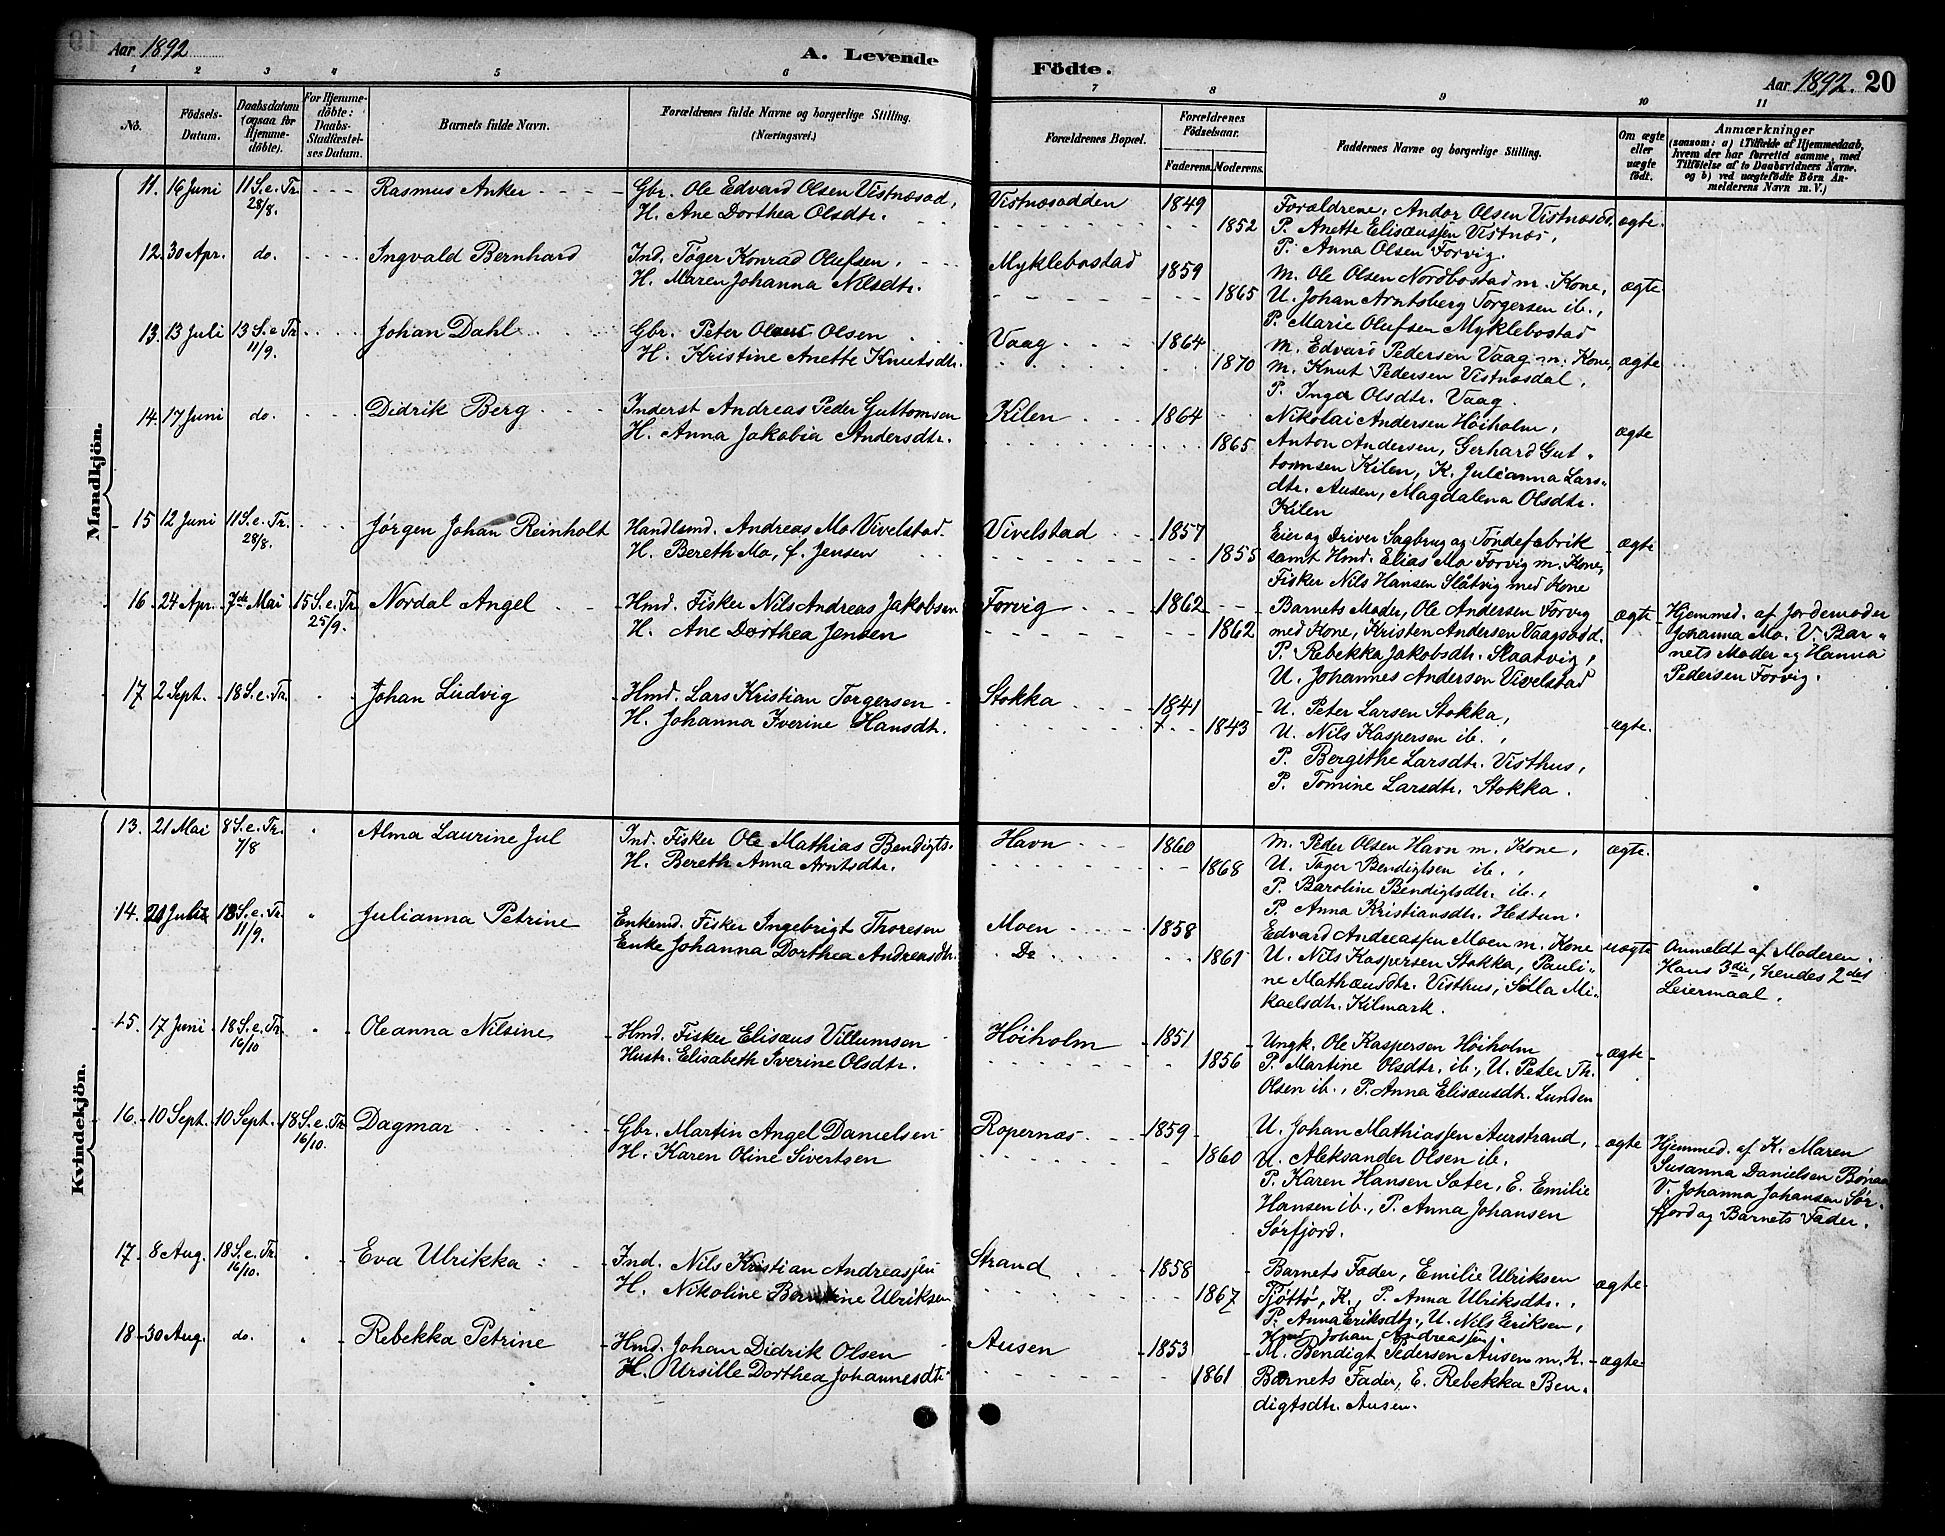 Aar 1892
A. Levende
Födte.
Aar 1892. 20
1 2 3 4 5 6 7 8 9 10 11
No.
Födsels-
Datum.
Daabsdatum
(ogsaa for
Hjemme-
döbte).
For Hjemme-
döbte:
Daabs-
Stadfæstel-
ses Datum.
Barnets fulde Navn.
Forældrenes fulde Navne og borgerlige Stilling.
(Næringsvei.)
Forældrenes Bopæl.
Forældrenes
Födselsaar.
Faderens. Moderens.
Faddernes Navne og borgerlige Stilling.
Om ægte
eller
uægte
født.
Anmærkninger
(saasom: a) i Tilfælde af Hjemmedaab,
hvem der har forrettet samme, med
Tilföielse af to Daabsvidners Navne.
og b) ved uægtefödte Börn An-
melderens Navn m. V.)
Mandkjön.
11. 16 Juni 11 S. e. Tr. 28/8. Rasmus Anker
Gbr. Ole Edvard Olsen Vistnæsød,
H. Ane Dorthea Olsdtr.
Vistnæsodden 1849
1852
Forældrene, Andor Olsen Vistnæsød. ægte.
P. Anette Elisæussen Vistnæs,
P. Anna Olsen Forvig.
12. 30 Apr. do. Ingvald Bernhard
Ind. Tøger Konrad Olufsen,
H. Maren Johanna Nilsdtr.
Myklebostad 1859
1865
M. Ole Olsen Nordbostad m. Kone, ægte
U. Johan Arntsberg Torgersen ib.,
P. Marie Olufsen Myklebostad
13. 13 Juli 13 S. e. Tr. 11/9. Johan Dahl
Gbr. Peter Olaus Olsen
H. Kristine Anette Knutsdtr.
Vaag 1864
1870
M. Edvard Pedersen Vaag m. Kone, ægte
M. Knut Pedersen Vistnæsdal,
P. Inger Olsdtr. Vaag.
14. 17 Juni do. Didrik Berg
Inderst Andreas Peder Guttomsen
H. Anna Jakobia Andersdtr.
Kilen 1864
1865
Nikolai Andersen Høiholm, ægte
Anton Andersen, Gerhard Gut-
tomsen Kilen, K. Julianna Lars-
dtr. Ausen, Magdalena Olsdtr.
Kilen
15 12 Juni 11 S. e. Tr. 28/8. Jørgen Johan Reinholt
Handlsmd. Andreas Mo Vivelstad.
H. Bereth Mo, f. Jensen
Vivelstad 1857
1855
Eier og Driver Sagbrug og Tøndefabrik ægte
samt Hmd. Elias Mo Forvig m. Kone,
Fisker Nils Hansen Slåtvig med Kone
16 24 Apr. 7de Mai 15 S. e. Tr. 25/9. Nordal Angel
Hmd. Fisker Nils Andreas Jakobsen
H. Ane Dorthea Jensen
Forvig 1862
1862
Barnets Moder, Ole Andersen Forvig ægte
med Kone, Kristen Andersen Vaagsødd.
P. Rebekka Jakobsdtr. Slaatvig,
U. Johannes Andersen Vivelstad
Hjemmed. af Jordemoder
Johanna Mo. V. Bar-
nets Moder og Hanna
Pedersen Forvig.
17 2 Sept. 18 S. e. Tr. Johan Ludvig
Hmd. Lars Kristian Torgersen
H. Johanna Iverine Hansdtr.
Stokka 1841
1843
U. Peter Larsen Stokka,
U. Nils Kaspersen ib., ægte.
P. Bergithe Larsdtr. Visthus,
P. Tomine Larsdtr. Stokka.
Kvindekjön.
13. 21 Mai 8 S. e. Tr. 7/8 Alma Laurine Jul
Ind. Fisker Ole Mathias Bendigts.
H. Bereth Anna Arntsdtr.
Havn 1860
1868
M. Peder Olsen Havn m. Kone, ægte.
U. Tøger Bendigtsen ib.,
P. Baroline Bendigtsdtr. ib.,
P. Anna Kristiansdtr. Hestun.
14. Juli S. e. Tr. 11/9. Julianna Petrine
Enkemd. Fisker Ingebrigt Thoresen
Enke Johanna Dorthea Andreasdtr.
Moen 1858
Do 1861
Edvard Andreassen Moen m. Kone uægte
U. Nils Kaspersen Stokka, Pauli-
ne Mathæusdtr. Visthus, Silla Mi-
kaelsdtr. Kilmark.
Anmeldt af Moderen.
Hans 3die, hendes 2det
Leiermaal.
15. 17 Juni 18 S. e. Tr. 16/10 Oleanna Nilsine
Hmd. Fisker Elisæus Villumsen
Hustr. Elisabeth Iverine Olsdtr.
Høiholm 1851
1856
Ungk. Ole Kaspersen Høiholm ægte
P. Martine Olsdtr. ib., U. Peter Th.
Olsen ib., P. Anna Elisæusdtr. Lunden
16. 10 Sept. 10 Sept. 18 S. e. Tr. 16/10. Dagmar
Gbr. Martin Angel Danielsen
H. Karen Oline Sivertsen
Ropernæs 1859
1860
U. Johan Mathiassen Aurstrand, ægte
U. Aleksander Olsen ib.
P. Karen Hansen Sæter, E. Emilie
Hansen ib., P. Anna Johansen
Sørfjord.
Hjemmed. af K. Maren
Susanna Danielsen Bønaa
V. Johanna Johansen Sør-
fjord og Barnets Fader.
17 8 Aug. 18 S. e. Tr. 16/10. Eva Ulrikka
Ind. Nils Kristian Andreassen
H. Nikoline Ulriksen
Strand 1858
1867
Barnets Fader, Emilie Ulriksen ægte
Tjøttø, K., P. Anna Ulriksdtr.,
P. Anna Eriksdtr., U. Nils Eriksen,
Hmd Johan Andreassen.
18 30 Aug. do. Rebekka Petrine
Hmd. Johan Didrik Olsen
H. Ursille Dorthea Johannesdtr
Ausen 1853
1861
Kl. Bendigt Pedersen Ausen m. K. ægte
Barnets Fader, E. Rebekka Ben-
digtsdtr. Ausen.